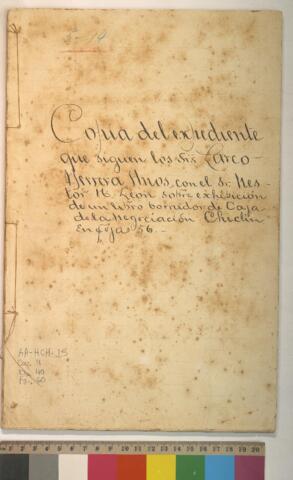 Copia del expediente
que siguen los Srs. Larco-
Herrera Hnos. con el Sr. Nes-
tor N. Leon sobre exhibición
de un libro borrador de Caja
de la negociación Chiclin
En fojas 56.-
AA-HCH-15
Fo. 60
1 2 3 4 5 6 7 8 9 10 11 12 13 14 15 16 17 18 19 20